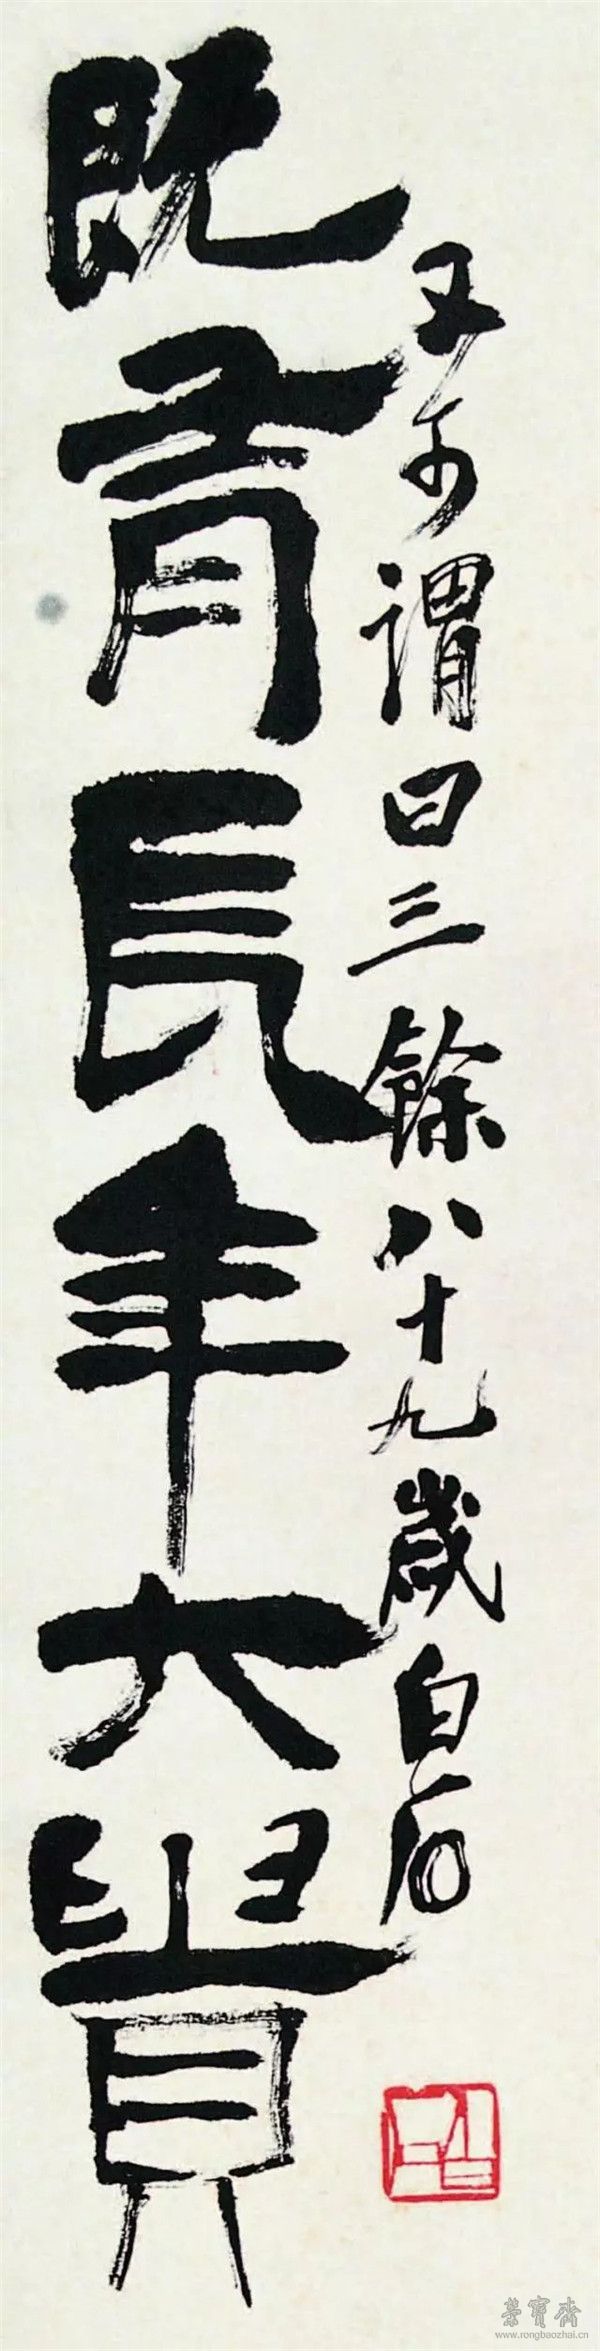 既有長年大貴
又可謂曰三餘八十九歲白石
榮寶齋
www.rongbaozhai.cn